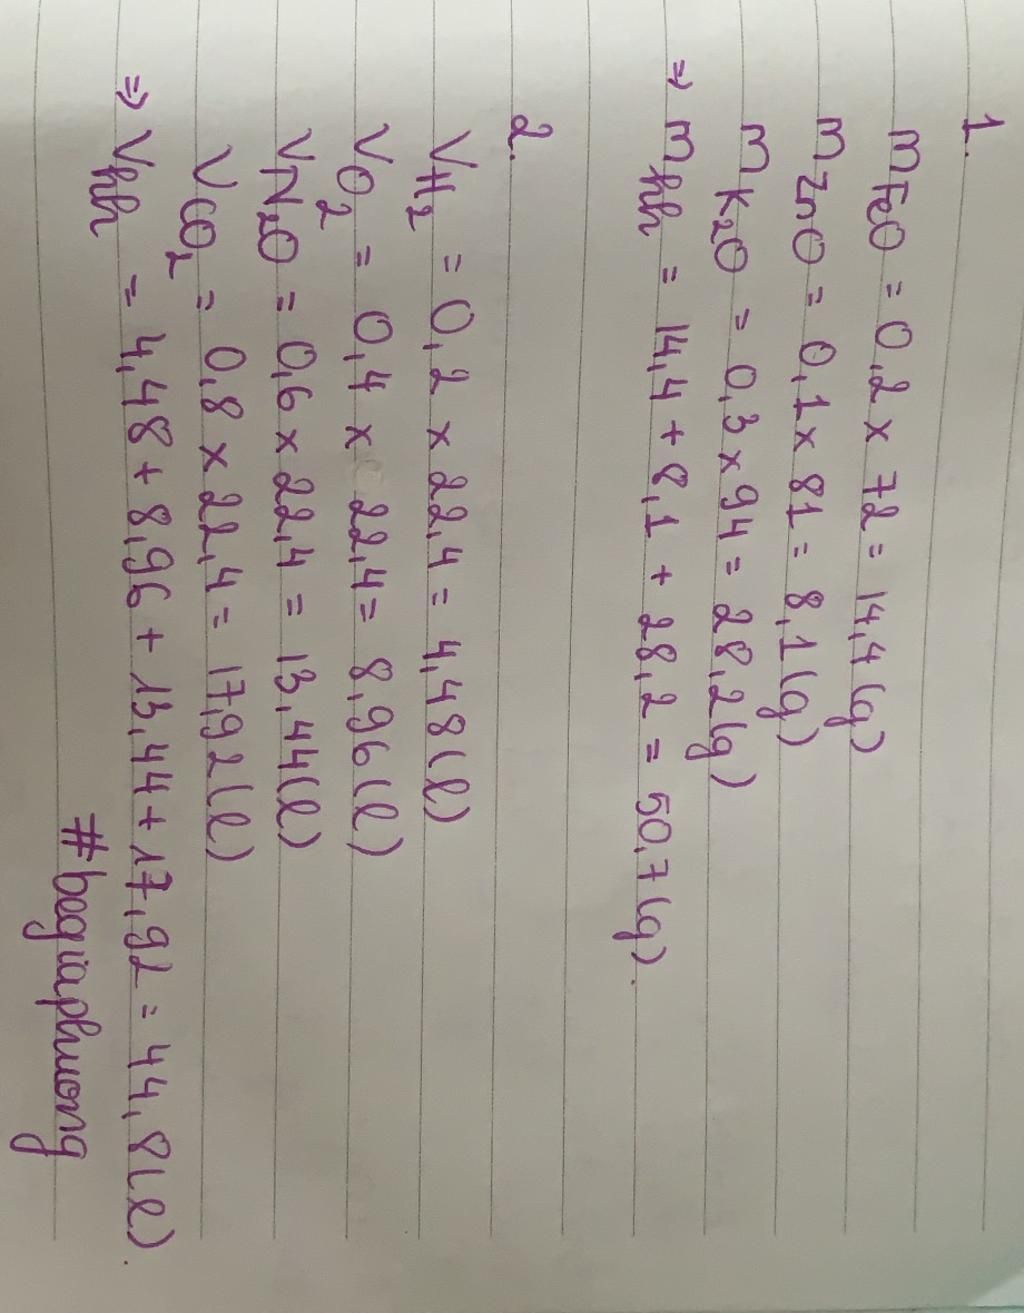 1.
mFeO = 0,2 x 72 = 14,4 (g)
mZnO = 0,1 x 81 = 8,1 (g)
mK2O = 0,3 x 94 = 28,2 (g)
=> mhh = 14,4 + 8,1 + 28,2 = 50,7 (g).
2.
VH2 = 0,2 x 22,4 = 4,48 (l)
VO2 = 0,4 x 22,4 = 8,96 (l)
VN2O = 0,6 x 22,4 = 13,44 (l)
VCO2 = 0,8 x 22,4 = 17,92 (l)
=> Vhh = 4,48 + 8,96 + 13,44 + 17,92 = 44,8 (l).
#begiaphuong